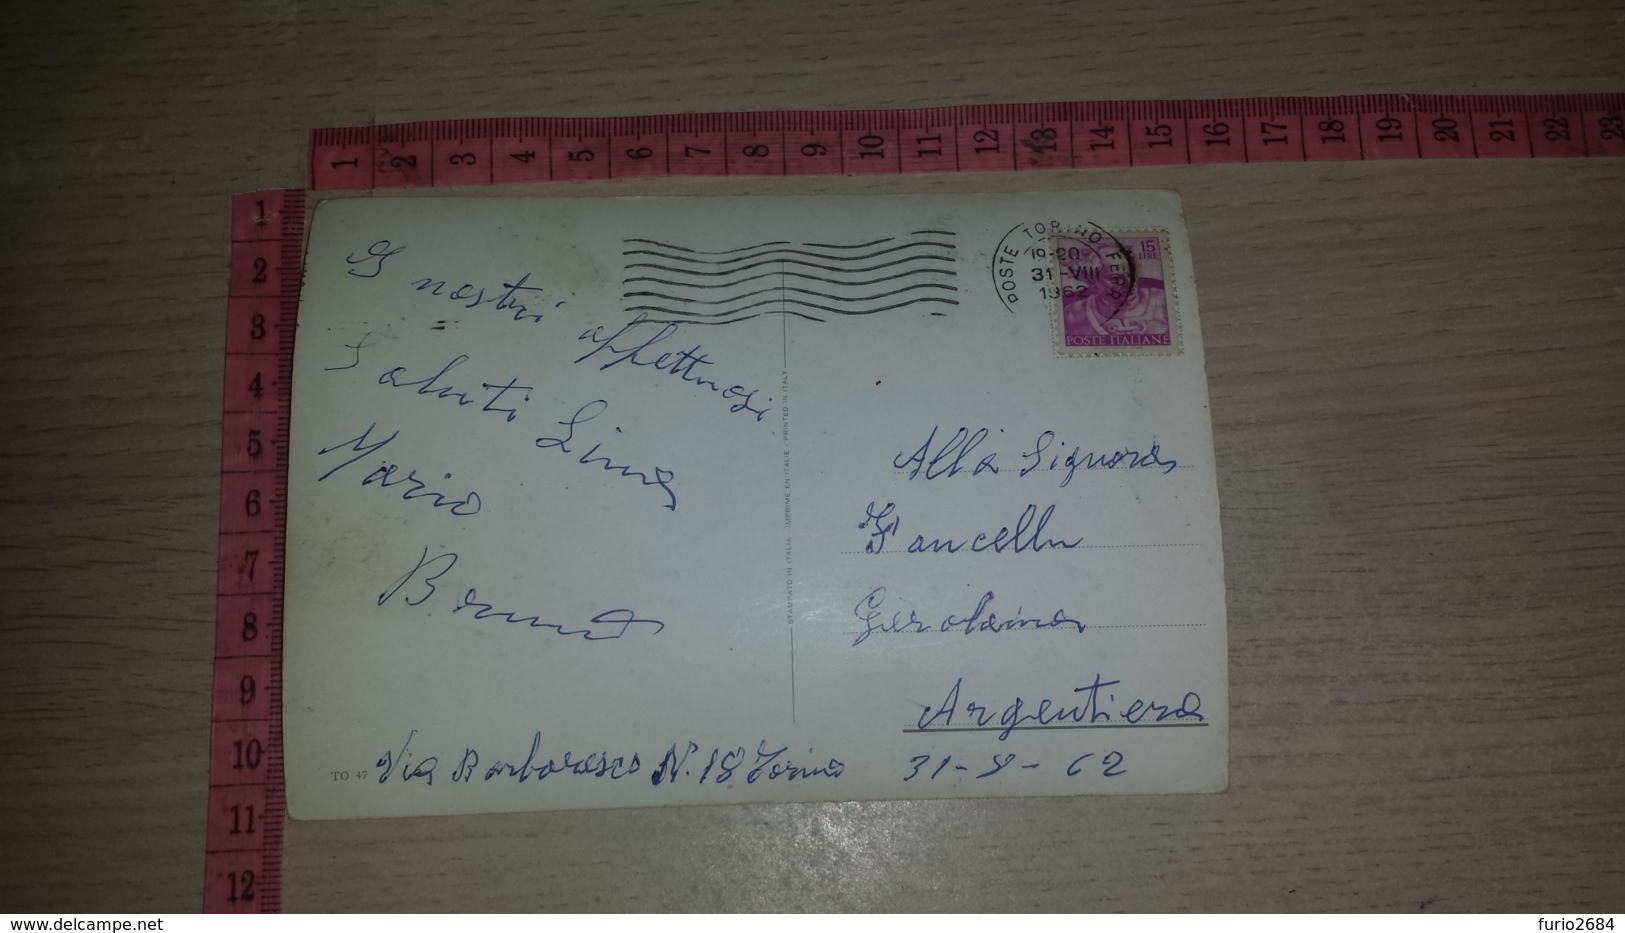 I nostri affettuosi
Saluti Lina
Mario
Via Barbaresco N. 18 Torino
TO 47
STAMPATO IN ITALIA - IMPRIME EN ITALIE - PRINTED IN ITALY
POSTE TORINO FERR
19-20
31-VIII
1962
15
LIRE
POSTE ITALIANE
Alla Signora
Gerolama
Argentiera
31-8-62
1 2 3 4 5 6 7 8 9 10 11 12 13 14 15 16 17 18 19 20 21 22 23
1
2
3
4
5
6
7
8
9
10
11
12
www.delcampe.net
furio2684